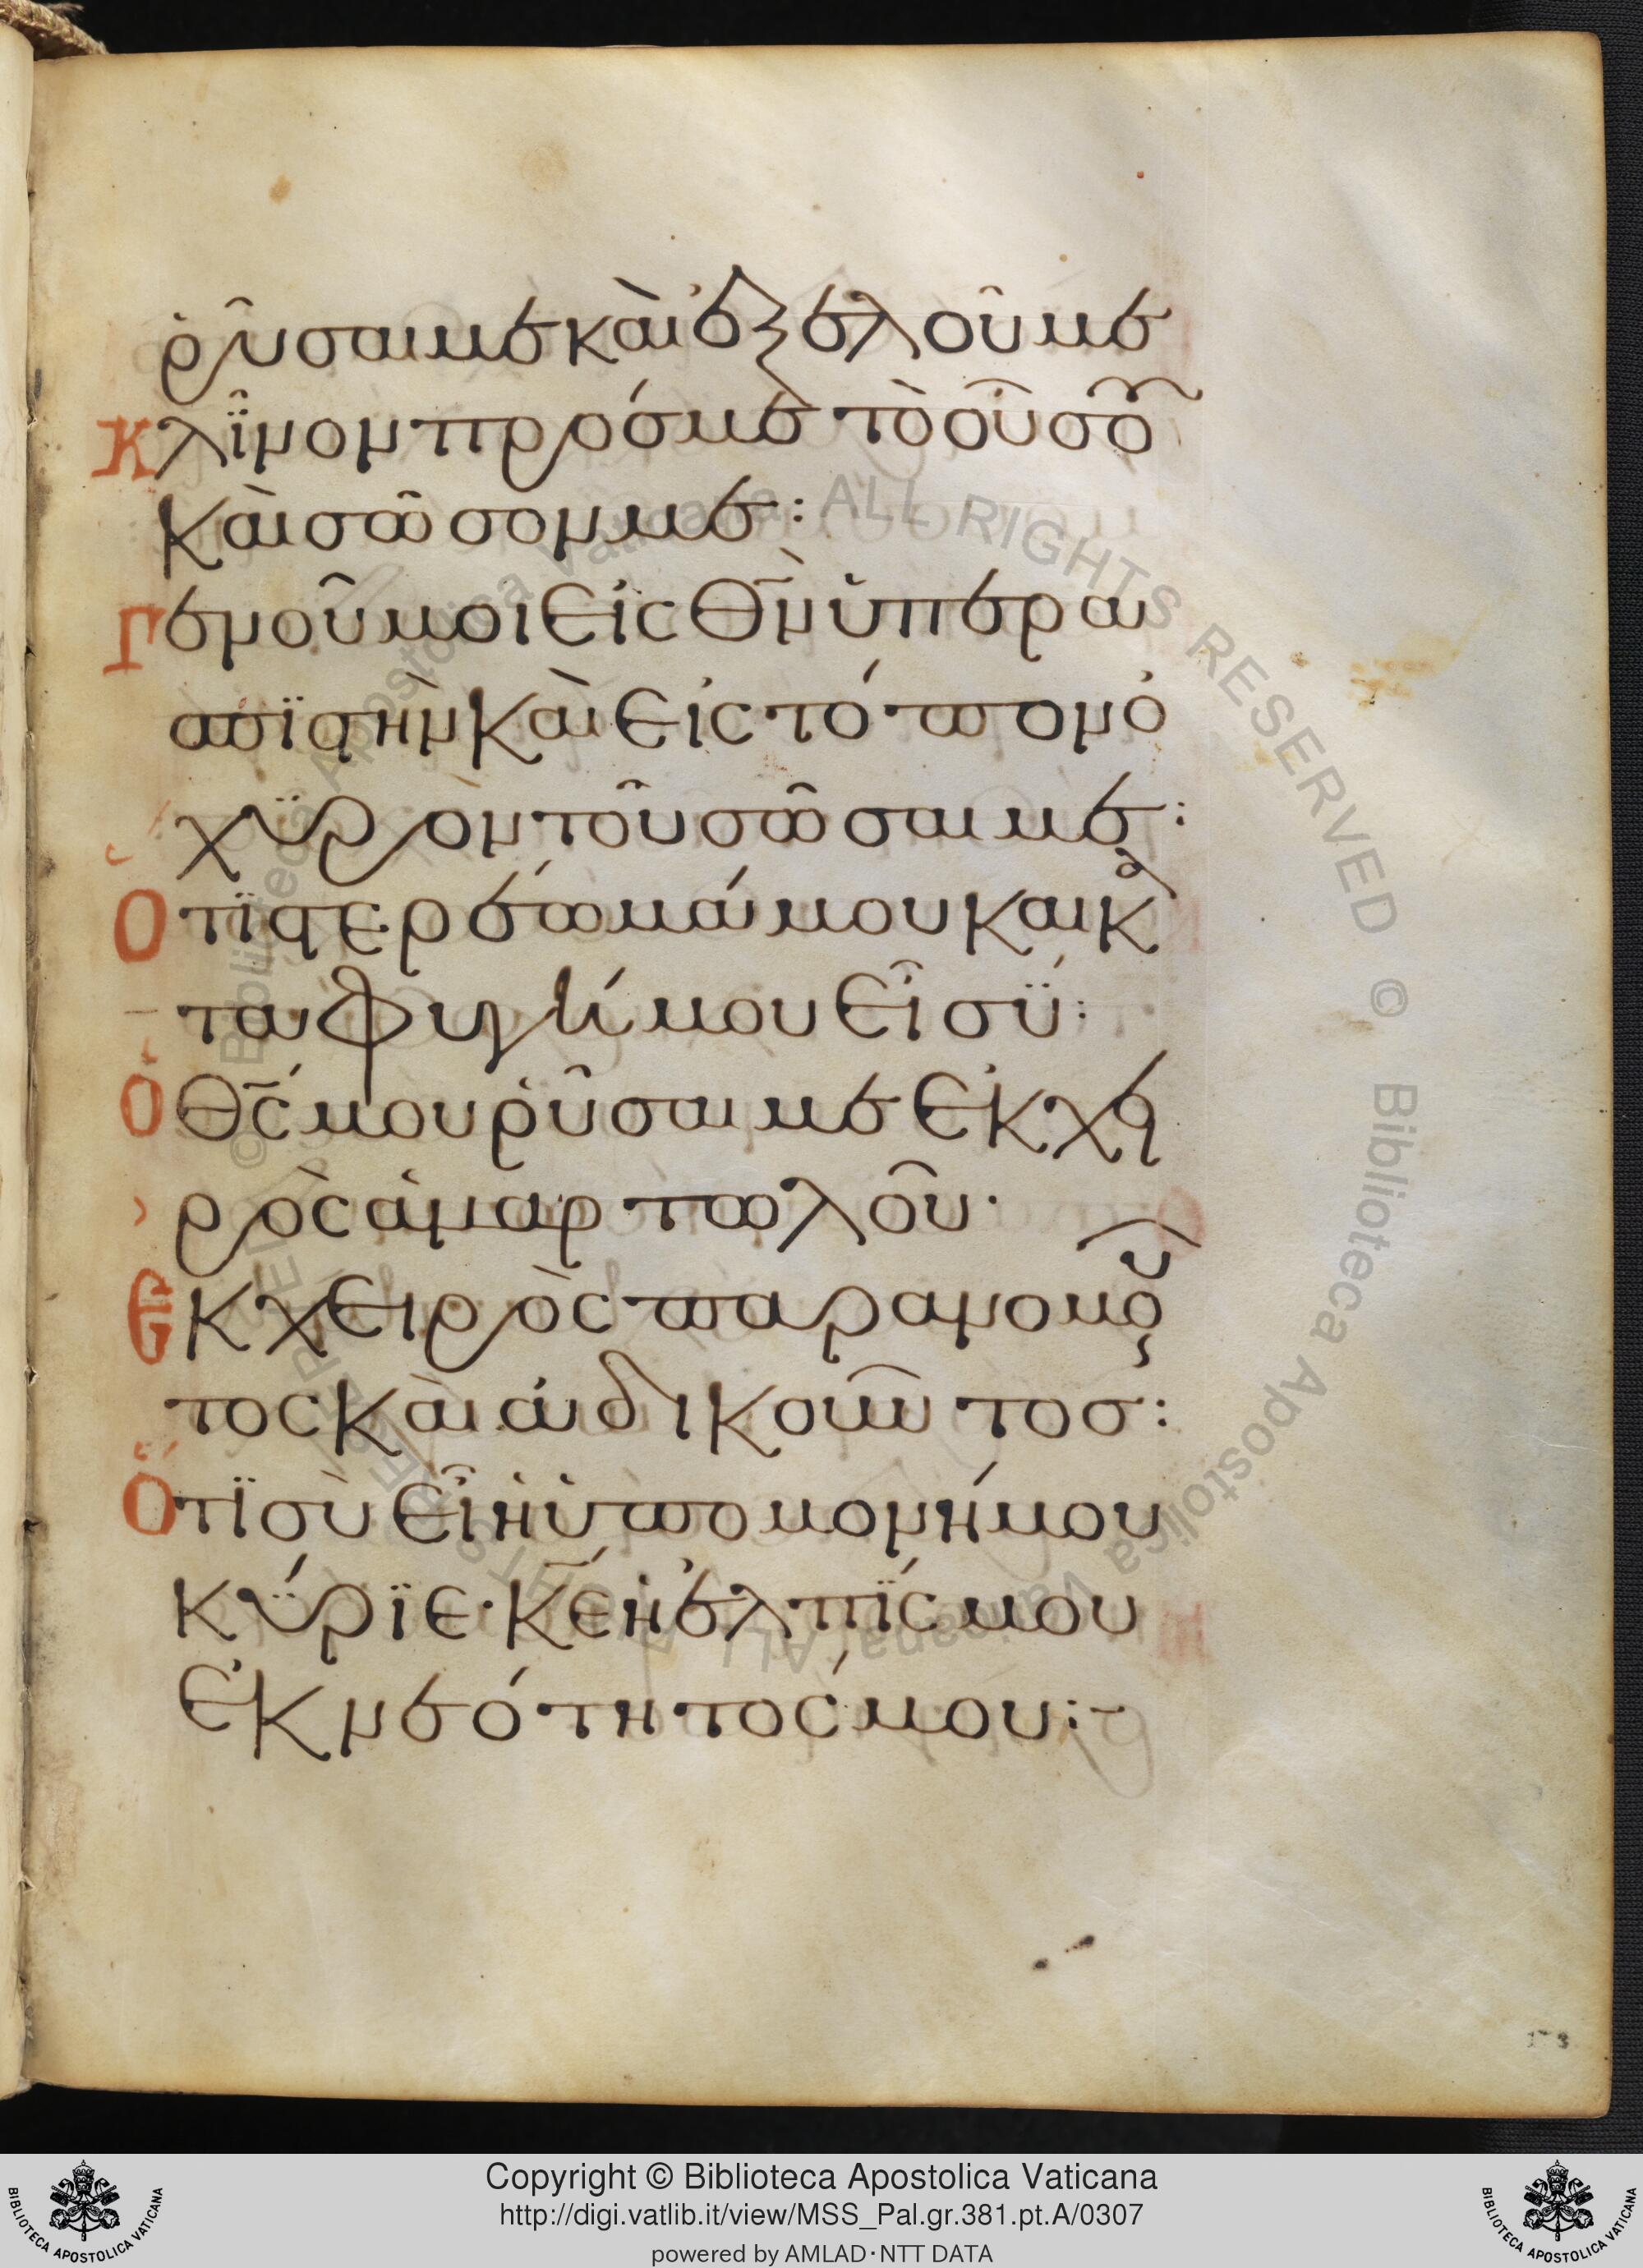 ῥῦσαι με καὶ ἐξελοῦ με
Κλῖνον πρός με τὸ οὖς σου
καὶ σῶσον με:
Γενοῦ μοι εἰς θν̄ ὑπερα
σπϊστὴν καὶ εἰς τόπον ὀ
χϋρὸν τοῦ σῶσαι με:
Ὅτϊ στερέωμά μου καὶ κα
ταφυγή μου εἶ σϋ:
Ὁ θς̄ μου ῥῦσαι με ἐκ χει
ρὸς ἁμαρτωλοῦ·
Ἐκ χειρὸς παρανομοῦν
τος καὶ ἀδικοῦντοσ:
Ὅτϊ σὺ εἶ ἡ ὑπομονή μου
κύρϊε· κε̄ ἡ ἐλπΐς μου
ἐκ νεότητός μου:~
© Biblioteca Apostolica Vaticana ALL RIGHTS RESERVED © Biblioteca Apostolica Vaticana ALL
Copyright © Biblioteca Apostolica Vaticana
http://digi.vatlib.it/view/MSS_Pal.gr.381.pt.A/0307
powered by AMLAD·NTT DATA
BIBLIOTECA APOSTOLICA VATICANA
BIBLIOTECA APOSTOLICA VATICANA